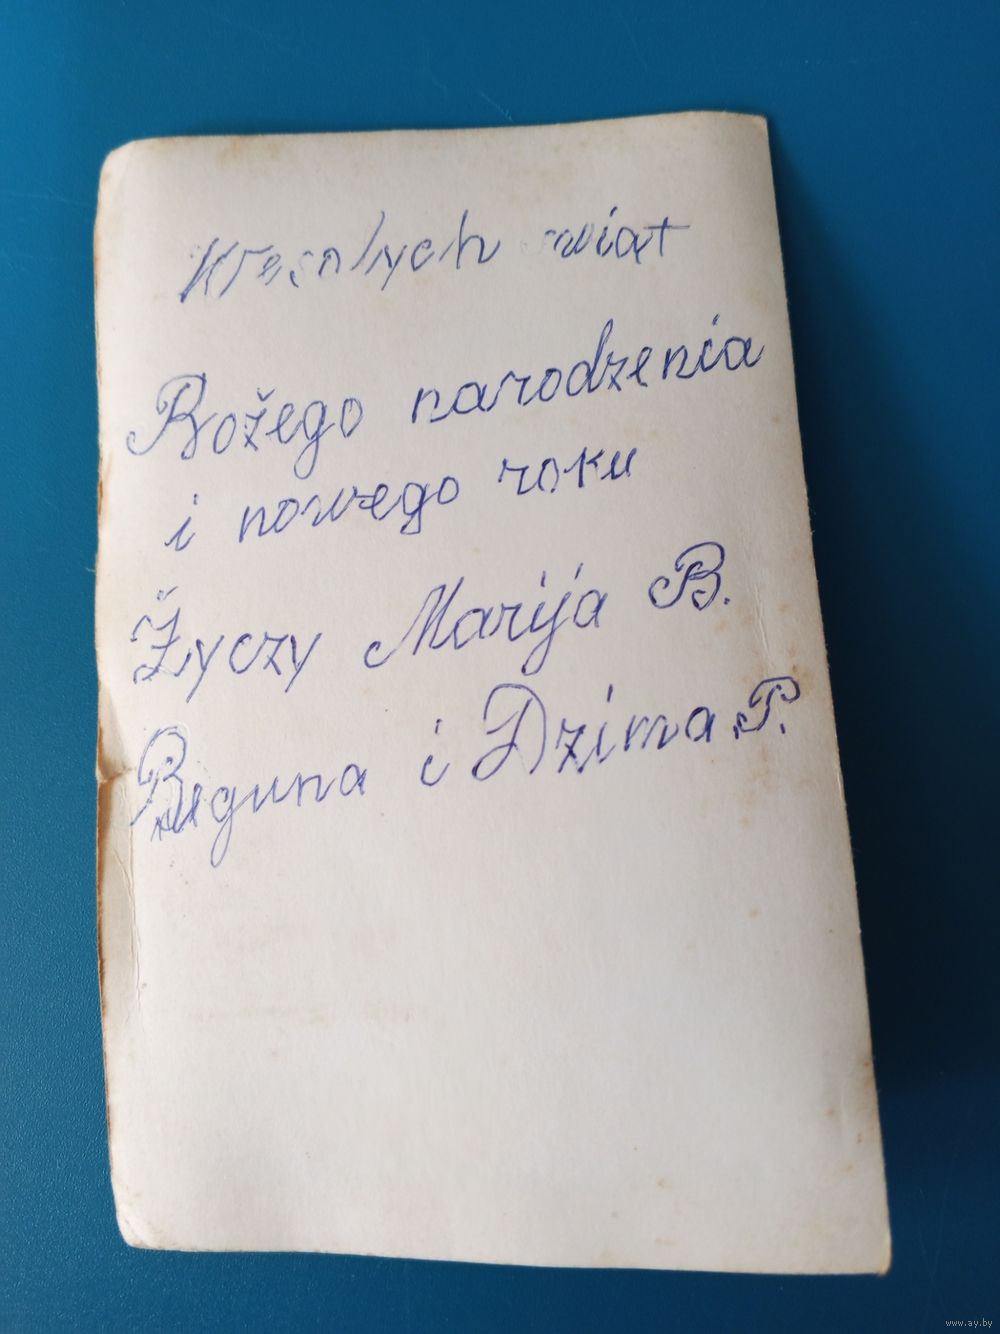 Wesołych świat
Božego narodzenia
i nowego roku
Žyczy Marija B.
Beguna i Dzima P.
www.ay.by